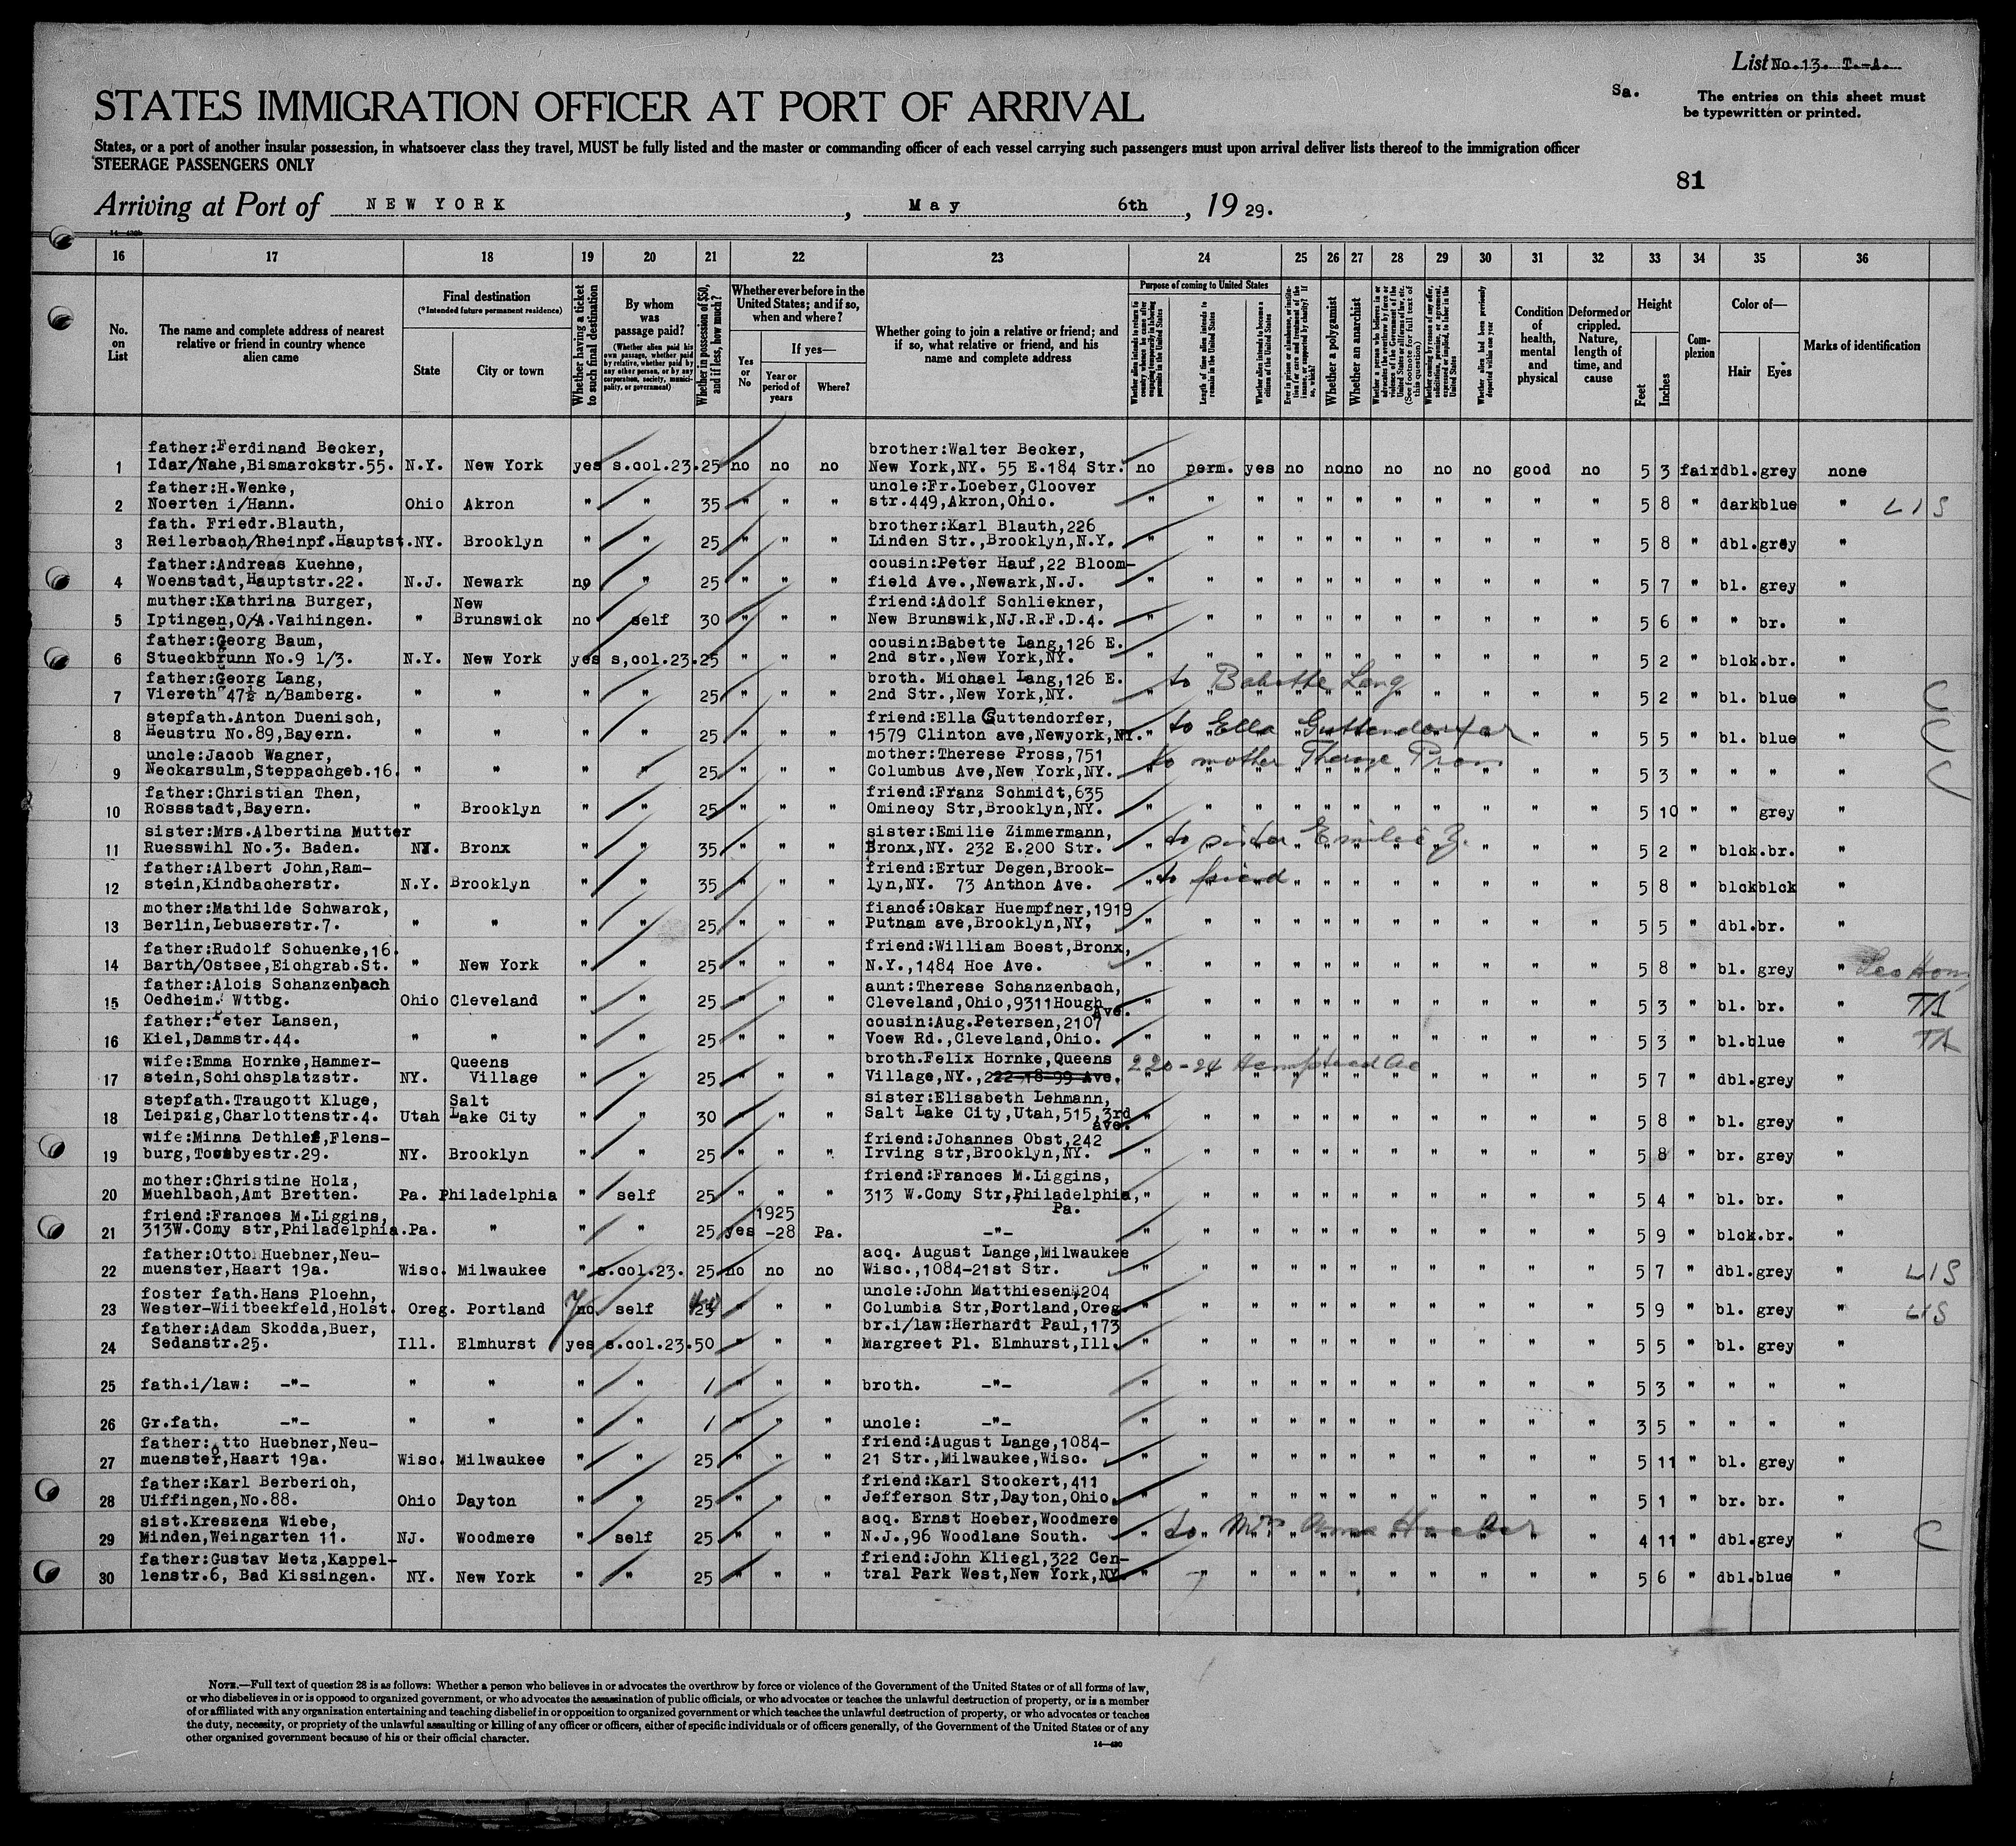 List No. 13. T.-A.
Sa.
The entries on this sheet must
be typewritten or printed.
STATES IMMIGRATION OFFICER AT PORT OF ARRIVAL
States, or a port of another insular possession, in whatsoever class they travel, MUST be fully listed and the master or commanding officer of each vessel carrying such passengers must upon arrival deliver lists thereof to the immigration officer
STEERAGE PASSENGERS ONLY
81
Arriving at Port of NEW YORK, May 6th, 1929.
16 17 18 19 20 21 22 23 24 25 26 27 28 29 30 31 32 33 34 35 36
No. on List
The name and complete address of nearest relative or friend in country whence alien came
Final destination
(*Intended future permanent residence)
State
City or town
Whether having a ticket to such final destination
By whom was passage paid?
(Whether alien paid his own passage, whether paid by relative, whether paid by any other person, or by any corporation, society, municipality, or government)
Whether in possession of $50, and if less, how much?
Whether ever before in the United States; and if so, when and where?
Yes or No
If yes—
Year or period of years
Where?
Whether going to join a relative or friend; and if so, what relative or friend, and his name and complete address
Purpose of coming to United States
Length of time alien intends to remain in the United States
Whether alien intends to become a citizen of the United States
Whether a polygamist
Whether an anarchist
Condition of health, mental and physical
Deformed or crippled. Nature, length of time, and cause
Height
Feet
Inches
Complexion
Color of—
Hair
Eyes
Marks of identification
father:Ferdinand Becker, brother:Walter Becker,
1 Idar/Nahe,Bismarckstr.55. N.Y. New York yes s.col.23. 25 no no no New York,NY. 55 E.184 Str. no perm. yes no no no no no no good no 5 3 fair dbl. grey none
father:H.Wenke, uncle:Fr.Loeber,Cloover
2 Noerten i/Hann. Ohio Akron " " 35 " " " str.449,Akron,Ohio. " " " " " " " " " " " 5 8 " dark blue " LIS
fath. Friedr.Blauth, brother:Karl Blauth,226
3 Reilerbach/Rheinpf.Hauptst. NY. Brooklyn " " 25 " " " Linden Str.,Brooklyn,N.Y. " " " " " " " " " " " 5 8 " dbl. grey "
father:Andreas Kuehne, cousin:Peter Hauf,22 Bloom-
4 Woenstadt,Hauptstr.22. N.J. Newark no " 25 " " " field Ave.,Newark,N.J. " " " " " " " " " " " 5 7 " bl. grey "
muther:Kathrina Burger, New friend:Adolf Schliekner,
5 Iptingen,O/A.Vaihingen. " Brunswick no self 30 " " " New Brunswik,NJ.R.F.D.4. " " " " " " " " " " " 5 6 " " br. "
father:Georg Baum, cousin:Babette Lang,126 E.
6 Stueckbrunn No.9 1/3. N.Y. New York yes s,col.23. 25 " " " 2nd str.,New York,NY. " " " " " " " " " " " 5 2 " blck. br. "
father:Georg Lang, broth. Michael Lang,126 E. to Babette Lang
7 Viereth 47½ n/Bamberg. " " " " 25 " " " 2nd Str.,New York,NY. " " " " " " " " " " " 5 2 " bl. blue " C
stepfath.Anton Duenisch, friend:Ella Guttendorfer, to Ella Guttendorfer
8 Heustru No.89,Bayern. " " " " 25 " " " 1579 Clinton ave,Newyork,NY. " " " " " " " " " " " 5 5 " bl. blue " C
uncle:Jacob Wagner, mother:Therese Pross,751 to mother Therese Pross
9 Neckarsulm,Steppachgeb.16. " " " " 25 " " " Columbus Ave,New York,NY. " " " " " " " " " " " 5 3 " " " " C
father:Christian Then, friend:Franz Schmidt,635
10 Rossstadt,Bayern. " Brooklyn " " 25 " " " Ominecy Str,Brooklyn,NY. " " " " " " " " " " " 5 10 " " grey "
sister:Mrs.Albertina Mutter sister:Emilie Zimmermann, to sister Emilie Z.
11 Ruesswihl No.3. Baden. NY. Bronx " " 35 " " " Bronx,NY. 232 E.200 Str. " " " " " " " " " " " 5 2 " blck. br. "
father:Albert John,Ram- friend:Ertur Degen,Brook- to friend
12 stein,Kindbacherstr. N.Y. Brooklyn " " 35 " " " lyn,NY. 73 Anthon Ave. " " " " " " " " " " " 5 8 " blck blck "
mother:Mathilde Schwarck, fiancé:Oskar Huempfner,1919
13 Berlin,Lebuserstr.7. " " " " 25 " " " Putnam ave,Brooklyn,NY, " " " " " " " " " " " 5 5 " dbl. br. "
father:Rudolf Schuenke,16. friend:William Boest,Bronx,
14 Barth/Ostsee,Eichgrab.St. " New York " " 25 " " " N.Y.,1484 Hoe Ave. " " " " " " " " " " " 5 8 " bl. grey "
father:Alois Schanzenbach aunt:Therese Schanzenbach,
15 Oedheim. Wttbg. Ohio Cleveland " " 25 " " " Cleveland,Ohio,9311Hough Ave. " " " " " " " " " " " 5 3 " bl. br. "
father:Peter Lansen, cousin:Aug.Petersen,2107
16 Kiel,Dammstr.44. " " " " 25 " " " Voew Rd.,Cleveland,Ohio. " " " " " " " " " " " 5 3 " bl. blue "
wife:Emma Hornke,Hammer- Queens broth.Felix Hornke,Queens 220-24 Hempstead Av
17 stein,Schichsplatzstr. NY. Village " " 25 " " " Village,NY.,222-18-99 Ave. " " " " " " " " " " " 5 7 " dbl. grey "
stepfath.Traugott Kluge, Salt sister:Elisabeth Lehmann,
18 Leipzig,Charlottenstr.4. Utah Lake City " " 30 " " " Salt Lake City,Utah,515,3rd ave. " " " " " " " " " " " 5 8 " bl. grey "
wife:Minna Dethlef,Flens- friend:Johannes Obst,242
19 burg,Toosbyestr.29. NY. Brooklyn " " 25 " " " Irving str,Brooklyn,NY. " " " " " " " " " " " 5 8 " br. grey "
mother:Christine Holz, friend:Frances M.Liggins,
20 Muehlbach,Amt Bretten. Pa. Philadelphia " self 25 " " " 313 W.Comy Str,Philadelphia, Pa. " " " " " " " " " " " 5 4 " bl. br. "
friend:Frances M.Liggins, 1925
21 313W.Comy str,Philadelphia. Pa. " " " 25 yes -28 Pa. -"- " " " " " " " " " " " 5 9 " blck. br. "
father:Otto Huebner,Neu- acq. August Lange,Milwaukee
22 muenster,Haart 19a. Wisc. Milwaukee " s.col.23. 25 no no no Wisc.,1084-21st Str. " " " " " " " " " " " 5 7 " dbl. grey " LIS
foster fath.Hans Ploehn, uncle:John Matthiesen,204
23 Wester-Wiitbeekfeld,Holst. Oreg. Portland no. self 25 " " " Columbia Str,Portland,Oreg " " " " " " " " " " " 5 9 " bl. grey " LIS
father:Adam Skodda,Buer, br.i/law:Herhardt Paul,173
24 Sedanstr.25. Ill. Elmhurst yes s.col.23. 50 " " " Margreet Pl. Elmhurst,Ill. " " " " " " " " " " " 5 5 " bl. grey "
25 fath.i/law: -"- " " " " / " " " broth. -"- " " " " " " " " " " " 5 3 " " " "
26 Gr.fath. -"- " " " " / " " " uncle: -"- " " " " " " " " " " " 3 5 " " " "
father:Otto Huebner,Neu- friend:August Lange,1084-
27 muenster,Haart 19a. Wisc. Milwaukee " " 25 " " " 21 Str.,Milwaukee,Wisc. " " " " " " " " " " " 5 11 " bl. grey "
father:Karl Berberich, friend:Karl Stockert,411
28 Uiffingen,No.88. Ohio Dayton " " 25 " " " Jefferson Str,Dayton,Ohio. " " " " " " " " " " " 5 1 " br. br. "
sist.Kreszenz Wiebe, acq. Ernst Hoeber,Woodmere to Mrs Anna Hoeber
29 Minden,Weingarten 11. NJ. Woodmere " self 25 " " " N.J.,96 Woodlane South. " " " " " " " " " " " 4 11 " dbl. grey " C
father:Gustav Metz,Kappel- friend:John Kliegl,322 Cen-
30 lenstr.6, Bad Kissingen. NY. New York " " 25 " " " tral Park West,New York,NY. " " " " " " " " " " " 5 6 " dbl. blue "
NOTE.—Full text of question 28 is as follows: Whether a person who believes in or advocates the overthrow by force or violence of the Government of the United States or of all forms of law,
or who disbelieves in or is opposed to organized government, or who advocates the assassination of public officials, or who advocates or teaches the unlawful destruction of property, or is a member
of or affiliated with any organization entertaining and teaching disbelief in or opposition to organized government or which teaches the unlawful destruction of property, or who advocates or teaches
the duty, necessity, or propriety of the unlawful assaulting or killing of any officer or officers, either of specific individuals or of officers generally, of the Government of the United States or of any
other organized government because of his or their official character.
14—430